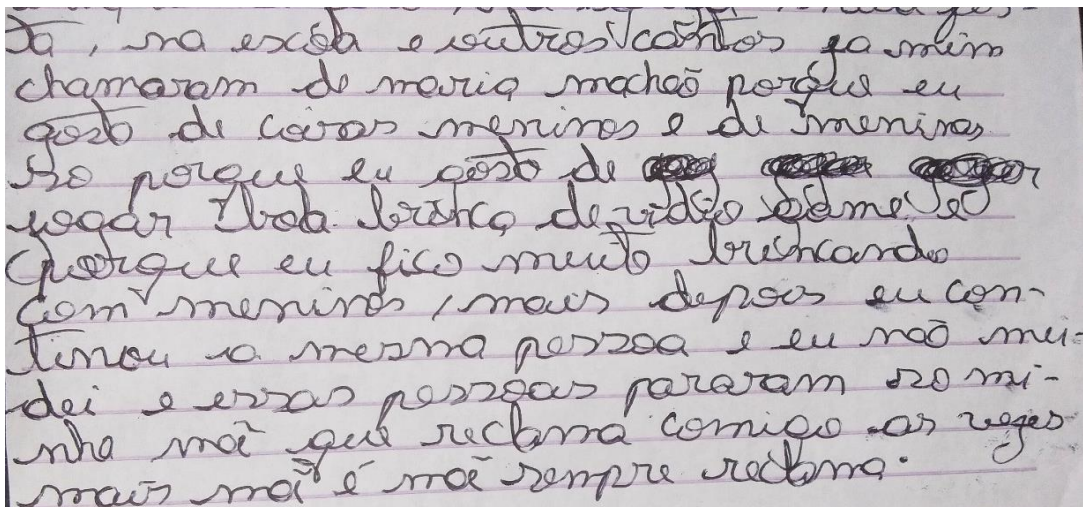 ta, na escola e outros cantos ja mim
chamaram de maria machão porque eu
gosto de coisas meninos e de meninas
so porque eu gosto de
jogar bola brinco de vidio game e
porque eu fico muito brincando
com meninos, mais depois eu con-
tinou a mesma pessoa e eu não mu-
dei e essas pessoas pararam so mi-
nha mãe que reclama comigo as vezes
mais mãe é mãe sempre reclama.